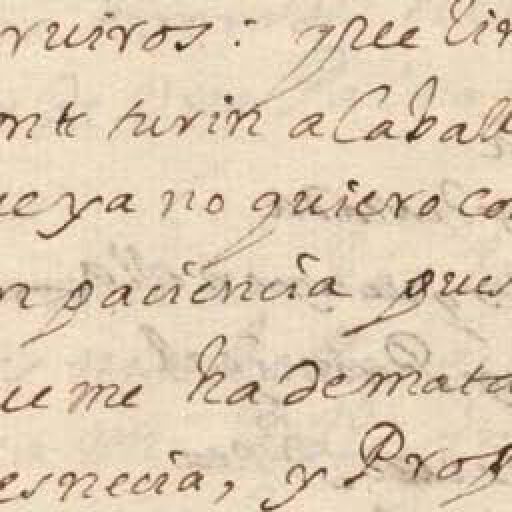 ruiros: y
onte turin a Caball
ue ya no quiero co
n paciencia pues
ue me ha de mata
esnecia, y Pros